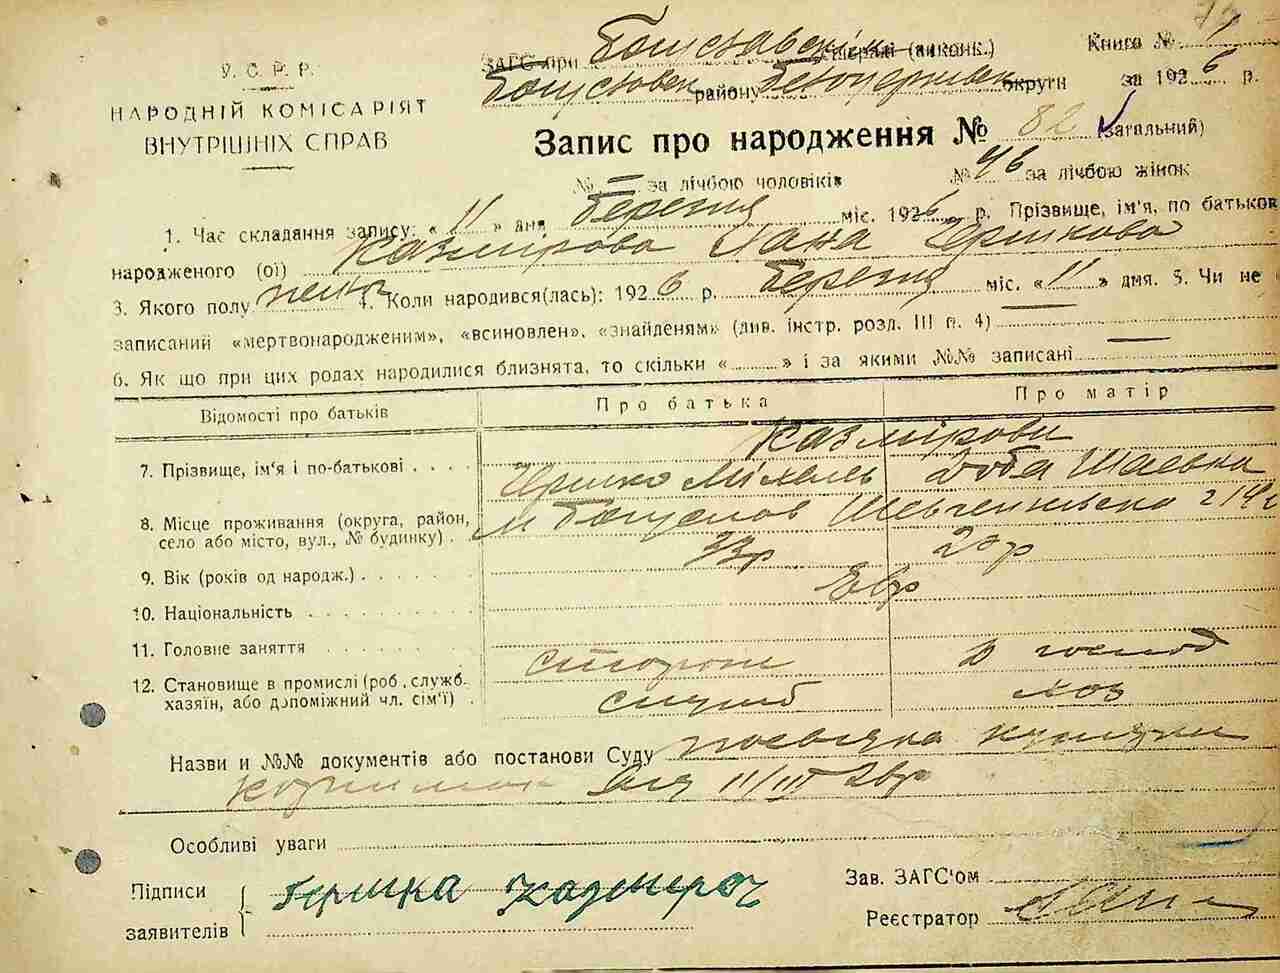 У. С. Р. Р.
НАРОДНІЙ КОМІСАРІЯТ
ВНУТРІШНІХ СПРАВ
ЗАГС при Богуславськім (виконк.) Книга № 1
району округи за 1926 р.
Запис про народження № 82 (загальний)
№ — за лічбою чоловіків № 46 за лічбою жінок
1. Час складання запису: « 11 » дня березня міс. 1926 р. Прізвище, ім'я, по батьков
народженого (ої) Казмірова
3. Якого полу жін 4. Коли народився(лась): 1926 р. березня міс. « 11 » дмя. 5. Чи не
записаний «мертвонародженим», «всиновлен», «знайденям» (див. інстр. розд. III п. 4) —
6. Як що при цих родах народилися близнята, то скільки « » і за якими №№ записані —
Відомості про батьків Про батька Про матір
Казмірови
7. Прізвище, ім'я і по-батькові Міхель Доба Шаевна
8. Місце проживання (округа, район, село або місто, вул., № будинку) м Богуслав
9. Вік (років од народж.) 20 р
10. Національність Євр
11. Головне заняття сторож в господ
12. Становище в промислі (роб., служб., хазяїн, або допоміжний чл. сім'ї) служб хоз
Назви и №№ документів або постанови Суду
від 11/III 26р
Особливі уваги
Підписи
заявителів Гершка
Зав. ЗАГС'ом
Реєстратор